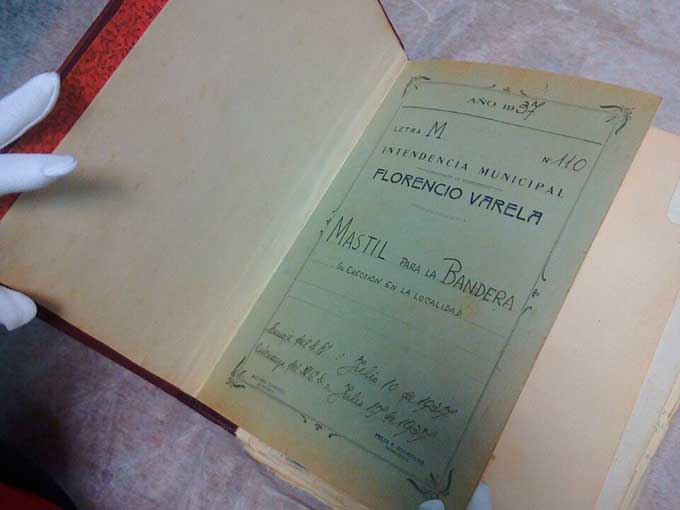 AÑO 1937
LETRA M Nº 110
INTENDENCIA MUNICIPAL
FLORENCIO VARELA
MASTIL PARA LA BANDERA
SU ERECCION EN LA LOCALIDAD
del : Julio 10 de 1937
del Julio 17 de 1937